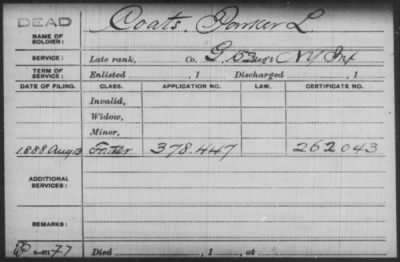 DEAD
Coats, Parker L.
NAME OF SOLDIER:
SERVICE: Late rank, Co. G, 153 Reg't NY Inf
TERM OF SERVICE: Enlisted , 1 Discharged , 1
DATE OF FILING. CLASS. APPLICATION NO. LAW. CERTIFICATE NO.
Invalid,
Widow,
Minor,
1888 Aug 13 Father 378.447 262043
ADDITIONAL SERVICES:
REMARKS:
77 Died , 1 , at